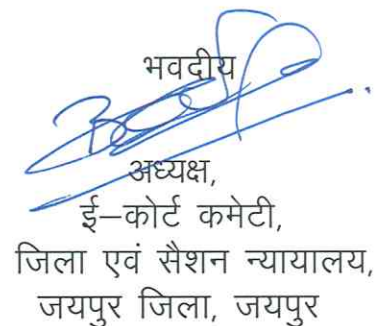 भवदीय
अध्यक्ष,
ई–कोर्ट कमेटी,
जिला एवं सैशन न्यायालय,
जयपुर जिला, जयपुर